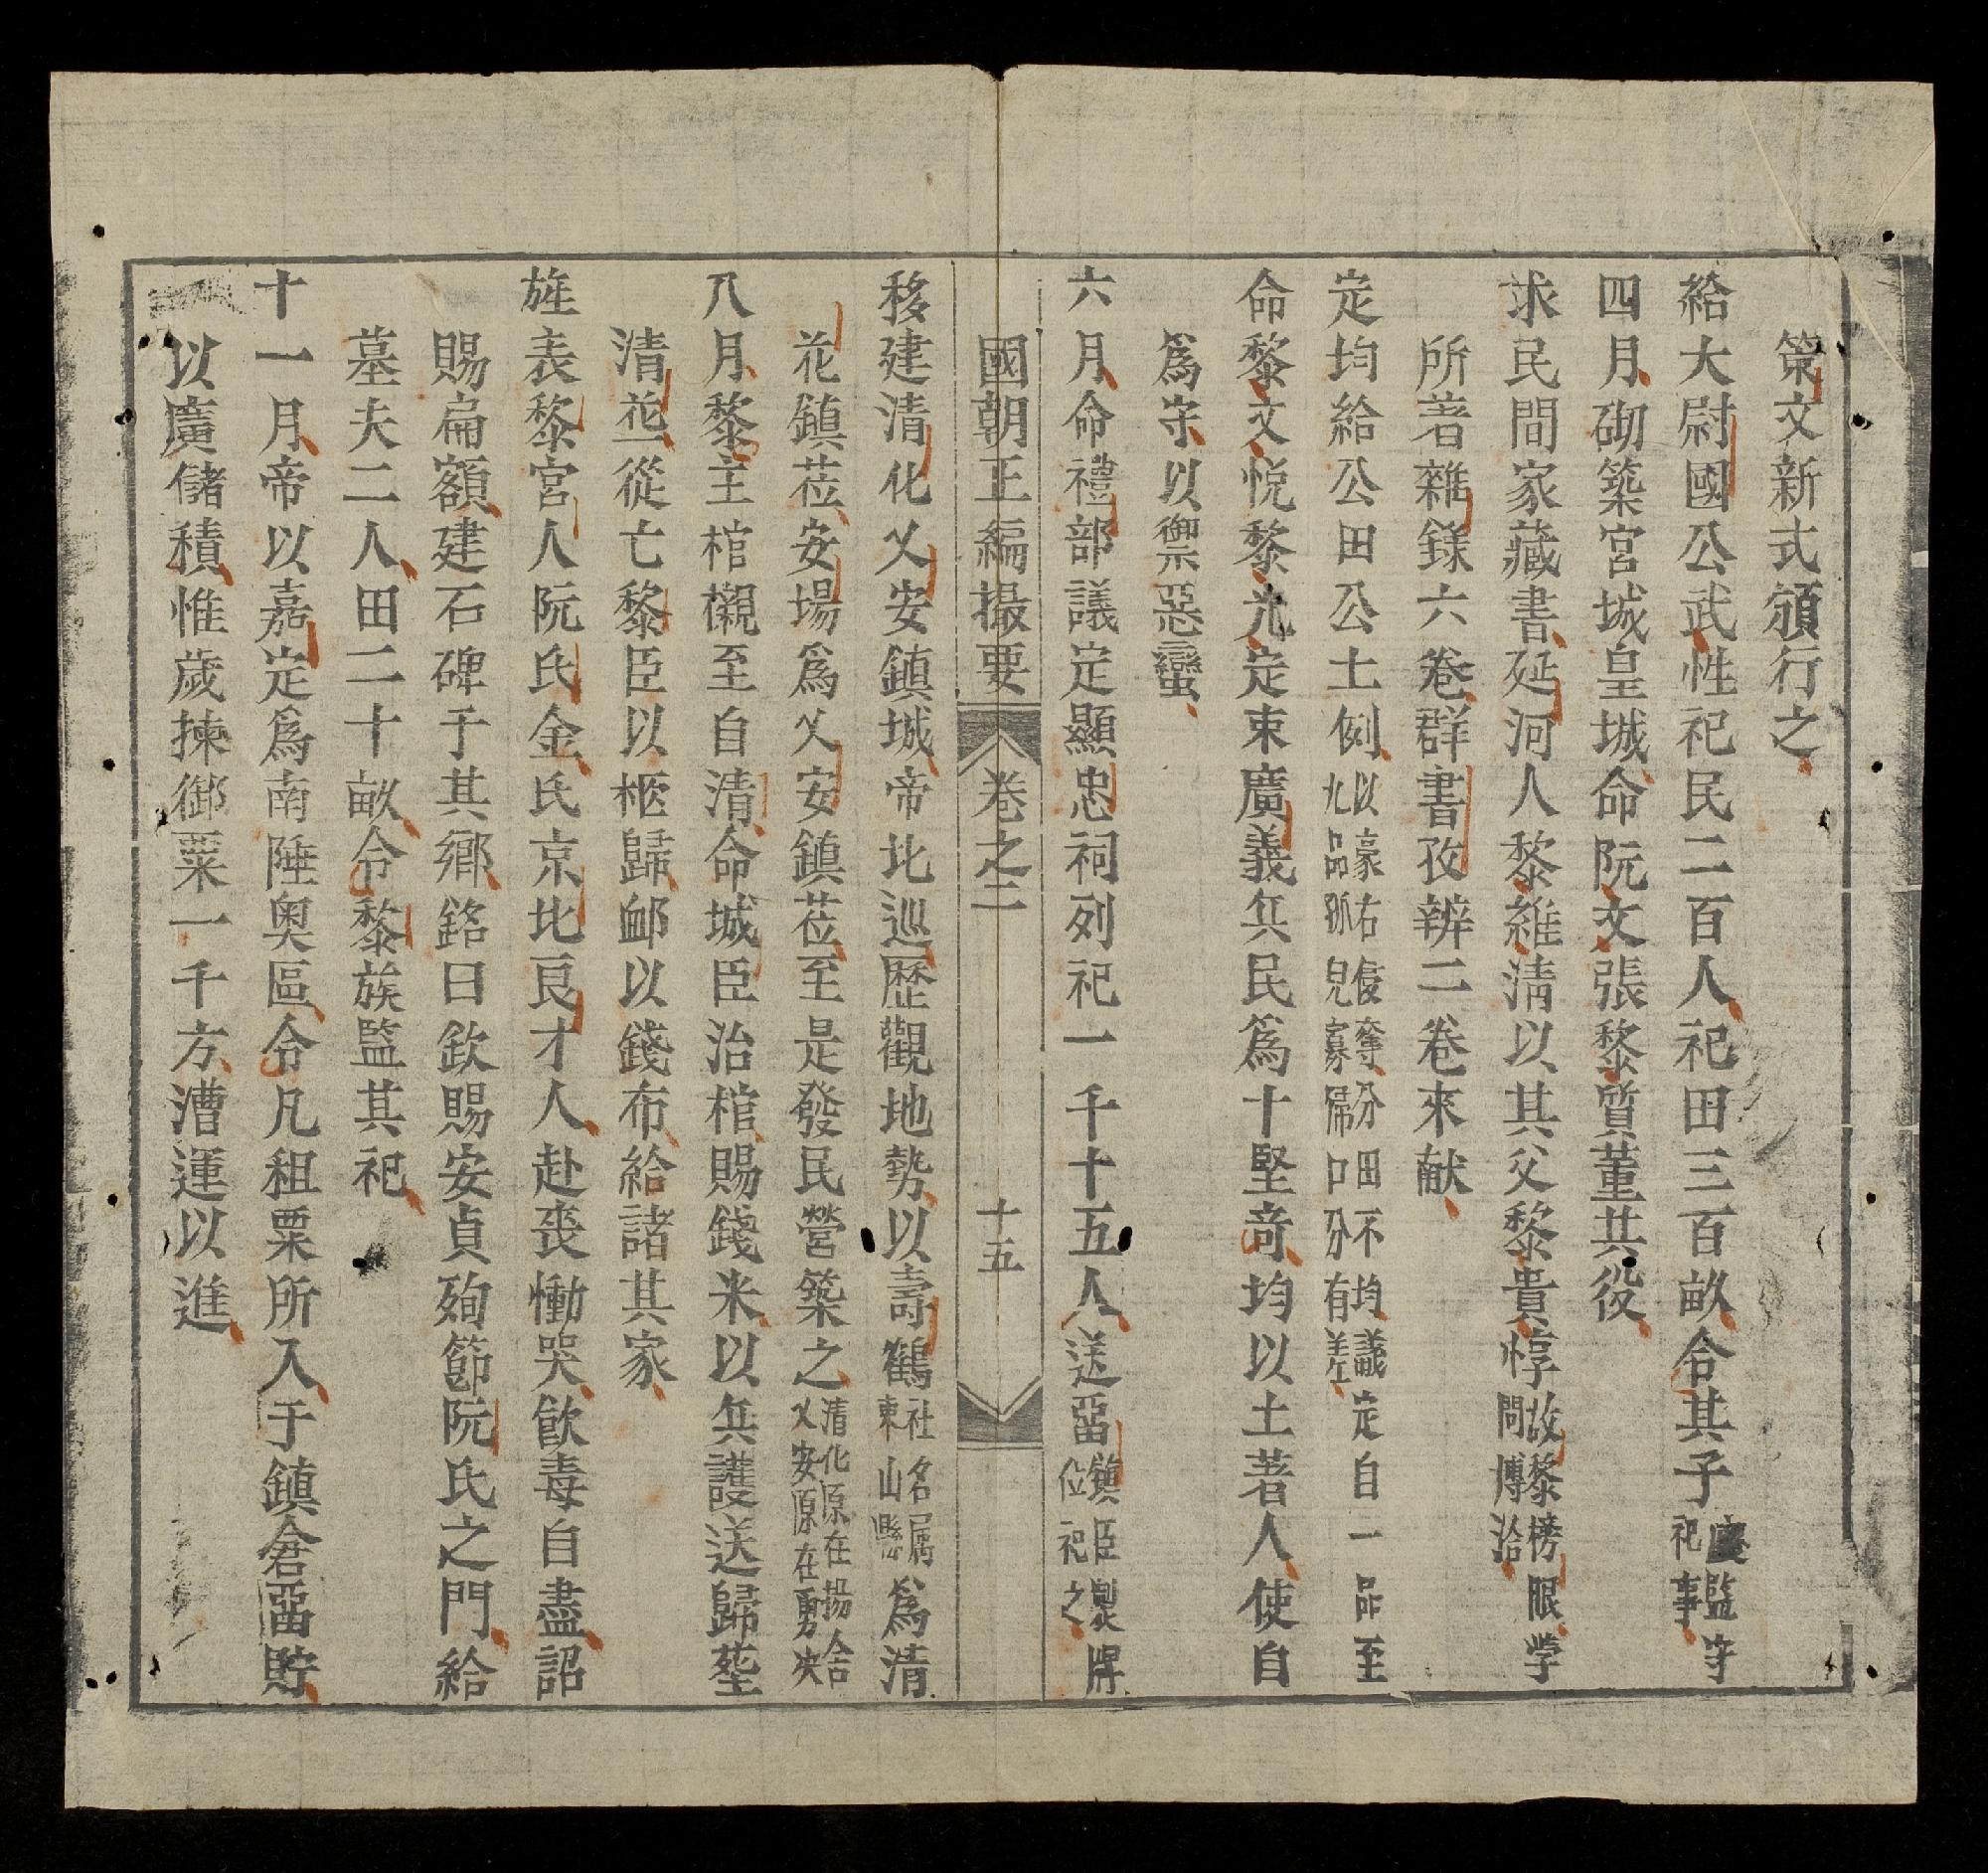 策文新式頒行之
給大尉國公武性祀民二百人祀田三百畝令其子慶監守祀事
四月砌築宮城皇城命阮文張黎質董共役
求民間家藏書延河人黎維淸以其父黎貴惇故黎榜眼學問博洽
所著雜錄六卷群書攷辨二卷來献
定均給公田公土例以豪右侵奪分田不均議定自一品至九品孤兒寡婦口分有差
命黎文悅黎光定束廣義兵民爲十堅竒均以土著人使自
爲守以禦惡蠻
六月命禮部議定顯忠祠列祀一千十五人送畱鎮臣製牌位祀之
國朝正編撮要 卷之二 十五
移建清化乂安鎮城帝北巡歷觀地勢以壽鶴社名属東山縣爲清
花鎮莅安塲爲乂安鎮莅至是發民營築之清化原在揚舍乂安原在勇决
八月黎主棺櫬至自清命城臣治棺賜錢米以兵護送歸塟
清花從亡黎臣以柩歸邺以錢布給諸其家
旌表黎宮人阮氏金氏京北良才人赴丧慟哭飮毒自盡詔
賜扁額建石碑于其鄉銘曰欽賜安貞殉節阮氏之門給
墓夫二人田二十畝令黎族監其祀
十一月帝以嘉定爲南陲奧區令凡租粟所入于鎮倉畱貯
以廣儲積惟歲揀御粟一千方漕運以進